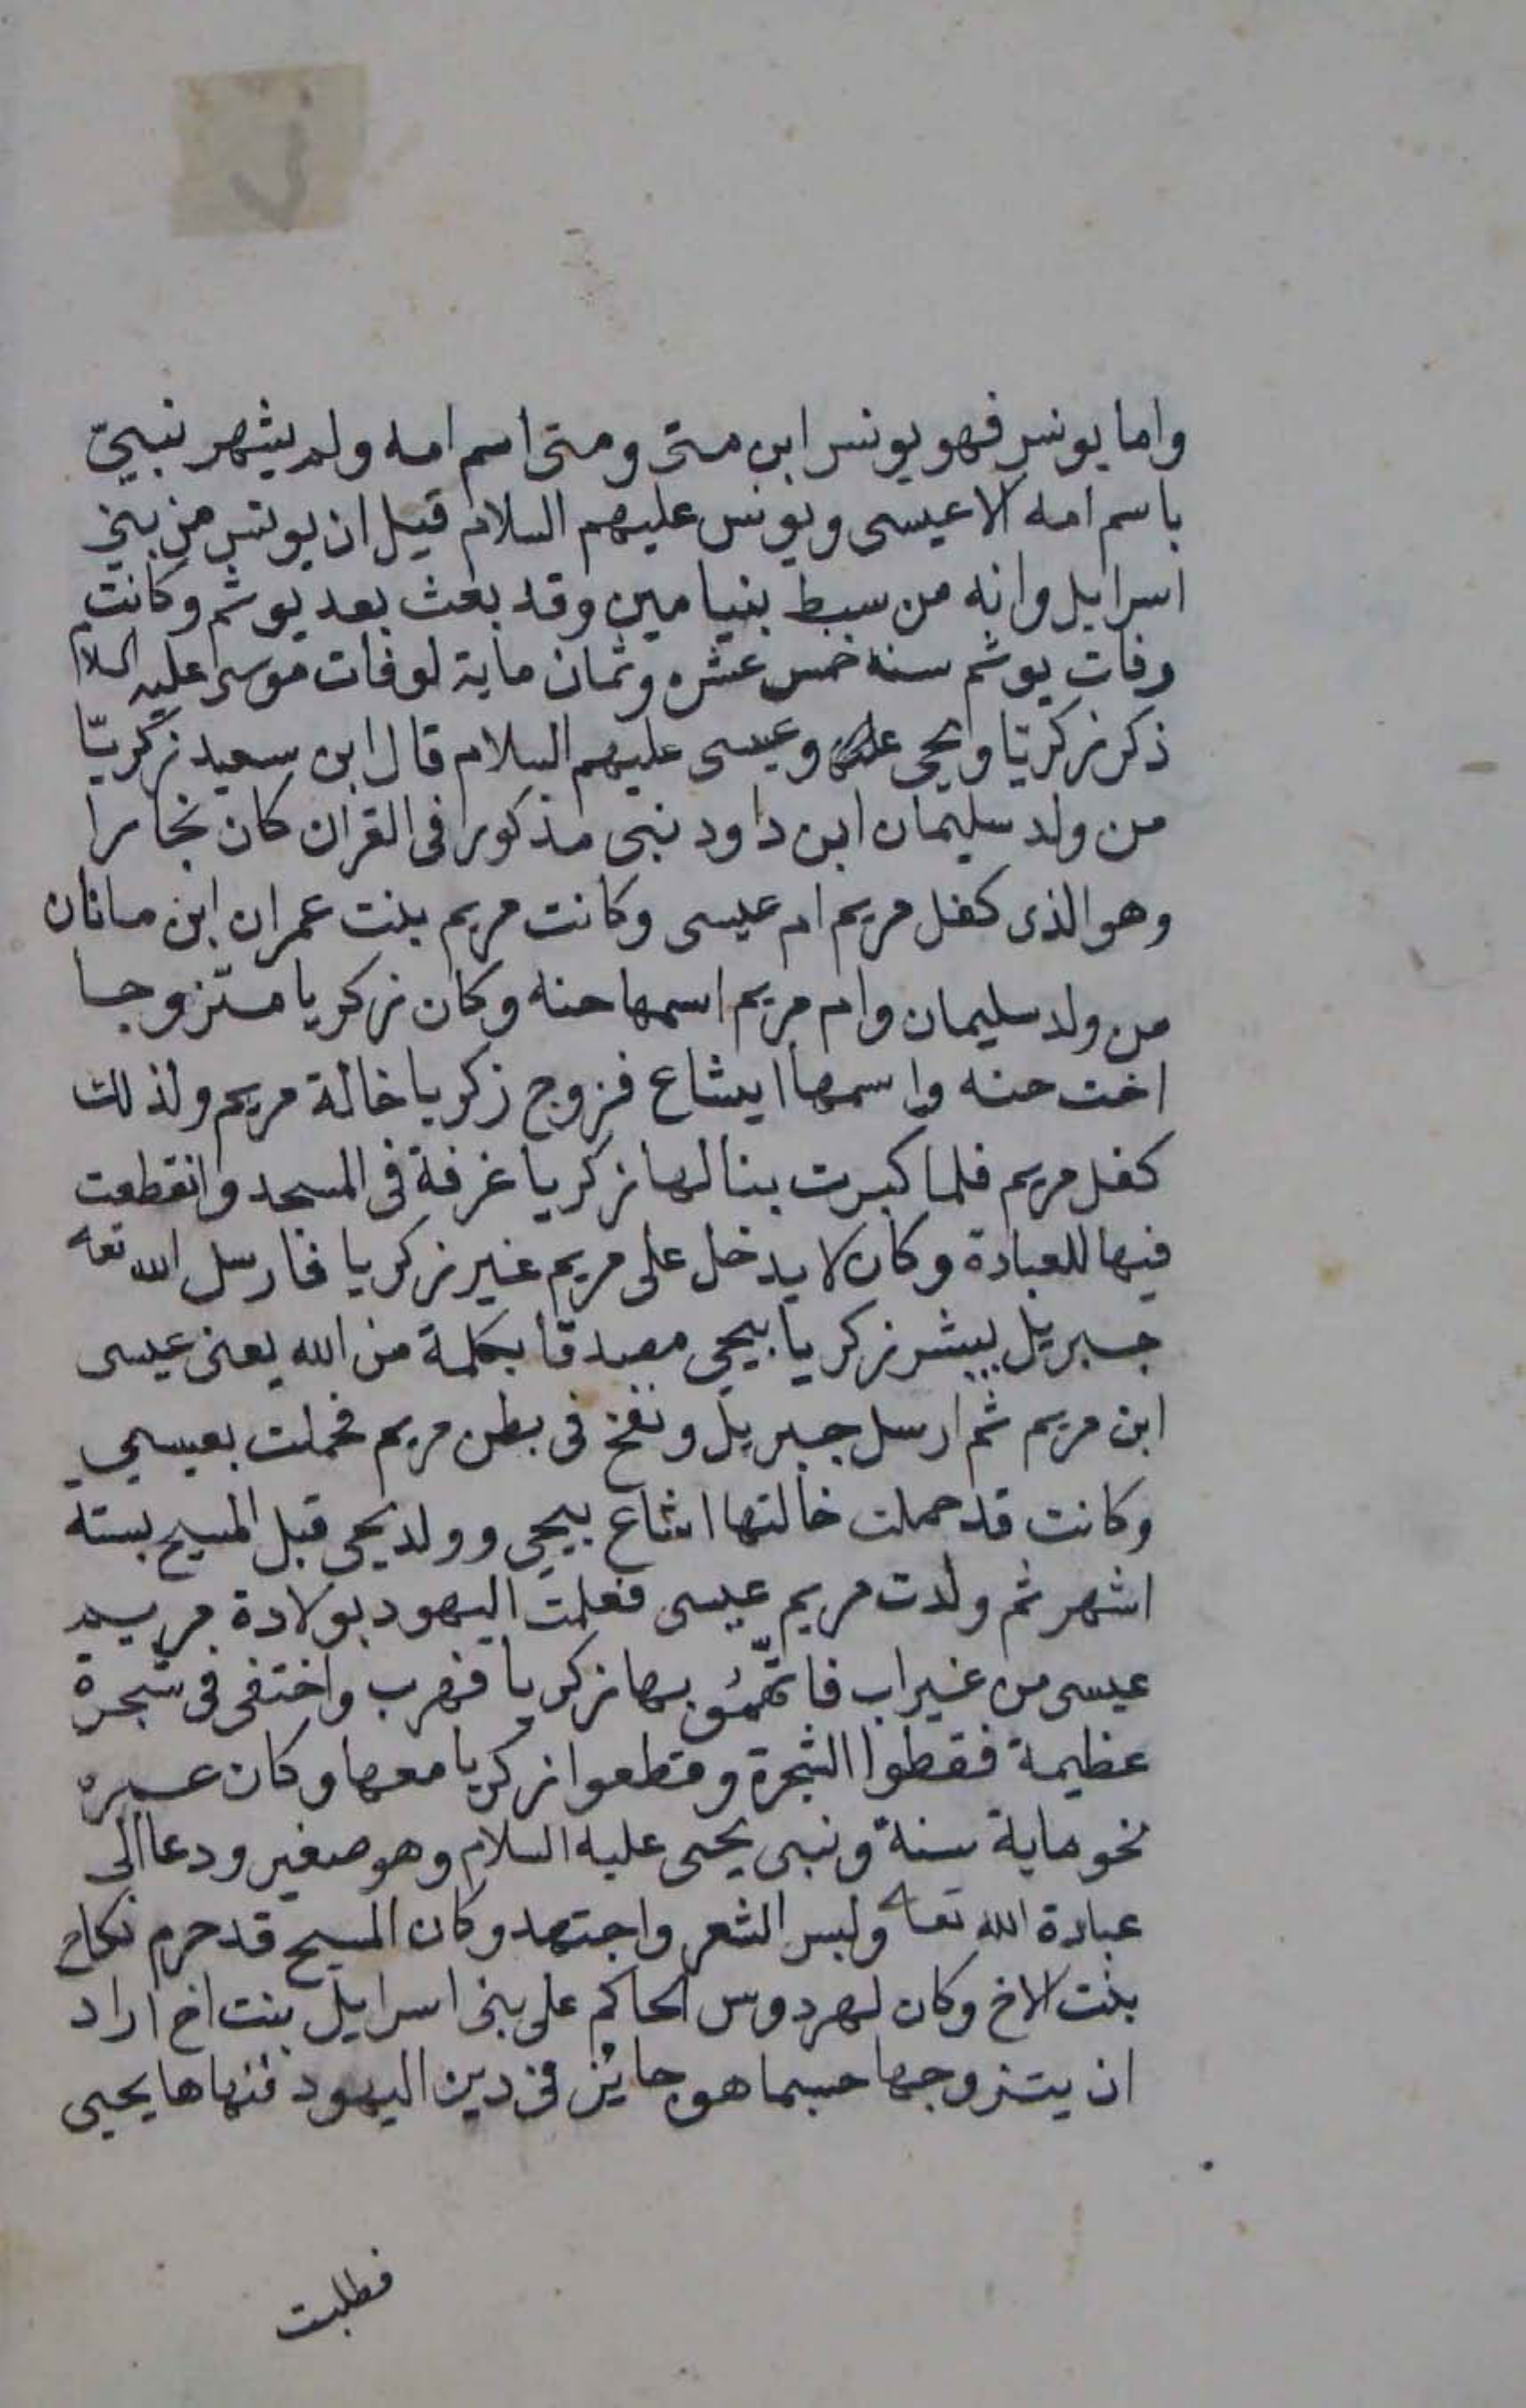 واما يونس فهو يونس ابن متى ومتى اسم امه ولم يشهر نبيّ
باسم امه الا عيسى ويونس عليهم السلام قيل ان يونس من بني
اسرايل وانه من سبط بنيامين وقد بعث بعد يوثم وكانت
وفات يوثم سنة خمس عشره وثمان ماية لوفات موسى عليه السلام
ذكر زكريّا ويحيى وعيسى عليهم السلام قال ابن سعيد زكريّا
من ولد سليمان ابن داود نبى مذكورا فى القران كان نجارا
وهو الذى كفل مريم ام عيسى وكانت مريم بنت عمران ابن ماثان
من ولد سليمان وام مريم اسمها حنه وكان زكريا متزوجا
اخت حنه واسمها ايشاع فزوج زكريا خالة مريم ولذلك
كفل مريم فلما كبرت بنا لها زكريا غرفة فى المسجد وانقطعت
فيها للعبادة وكان لا يدخل على مريم غير زكريا فارسل الله تعا
جبريل يبشر زكريا بيحيى مصدقا بكلمة من الله يعنى عيسى
ابن مريم ثم ارسل جبريل ونفخ فى بطن مريم فحملت بعيسى
وكانت قد حملت خالتها اشاع بيحيى وولد يحيى قبل المسيح بستة
اشهر ثم ولدت مريم عيسى فعلمت اليهود بولادة مريم
عيسى من غير اب فاتّهموُ بها زكريا فهرب واختفى فى شجرة
عظيمة فقطوا الشجرة وقطعوا زكريا معها وكان عمره
نحو ماية سنة ونبى يحيى عليه السلام وهو صغير ودعا الى
عبادة الله تعا ولبس الشعر واجتهد وكان المسيح قد حرم نكاح
بنت الاخ وكان لهردوس الحاكم على بنى اسرايل بنت اخ اراد
ان يتزوجها حسبما هو جايز فى دين اليهود فنهاها يحيى
فطلبت